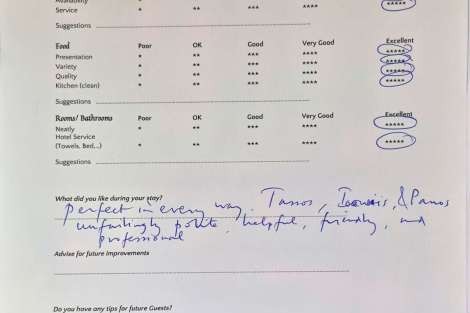 Availability
Service * ** *** **** *****
Suggestions
Food Poor OK Good Very Good Excellent
Presentation * ** *** **** *****
Variety * ** *** **** *****
Quality * ** *** **** *****
Kitchen (clean) * ** *** **** *****
Suggestions
Rooms/ Bathrooms Poor OK Good Very Good Excellent
Neatly * ** *** **** *****
Hotel Service
(Towels, Bed,..) * ** *** **** *****
Suggestions
What did you like during your stay?
Perfect in every way. Tassos, Ioannis, & Panos
unfailingly polite, helpful, friendly, and
professional
Advise for future improvements
Do you have any tips for future Guests?